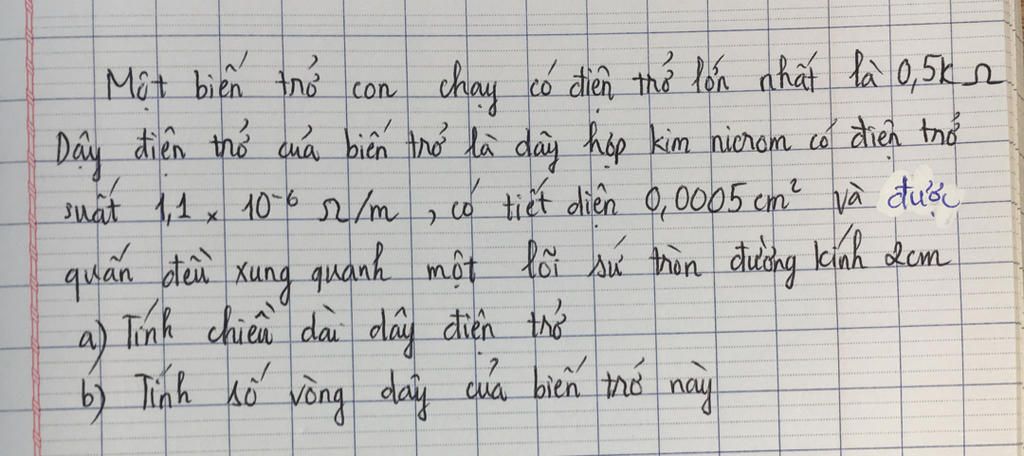 Một biến trở con chạy có điện trở lớn nhất là 0,5k Ω
Dây điện trở của biến trở là dây hợp kim nicrom có điện trở
suất 1,1 × 10⁻⁶ Ω/m , có tiết diện 0,0005 cm² và được
quấn đều xung quanh một lõi sứ tròn đường kính 2cm
a) Tính chiều dài dây điện trở
b) Tính số vòng dây của biến trở này